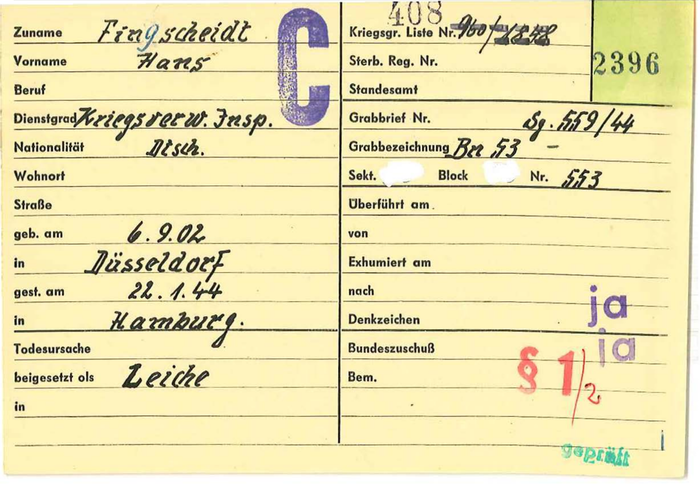 408
Zuname Fingscheidt
C
Kriegsgr. Liste Nr. 960/
2396
Vorname Hans
Sterb. Reg. Nr.
Beruf
Standesamt
Dienstgrad Kriegsverw. Insp.
Grabbrief Nr. Sg. 559/44
Nationalität Dtsch.
Grabbezeichnung Bn 53 -
Wohnort
Sekt. Block Nr. 553
Straße
Überführt am
geb. am 6.9.02
von
in Düsseldorf
Exhumiert am
gest. am 22.1.44
nach
ja
in Hamburg.
Denkzeichen
Todesursache
Bundeszuschuß
ja
beigesetzt als Leiche
Bem.
§ 1/2
in
geprüft